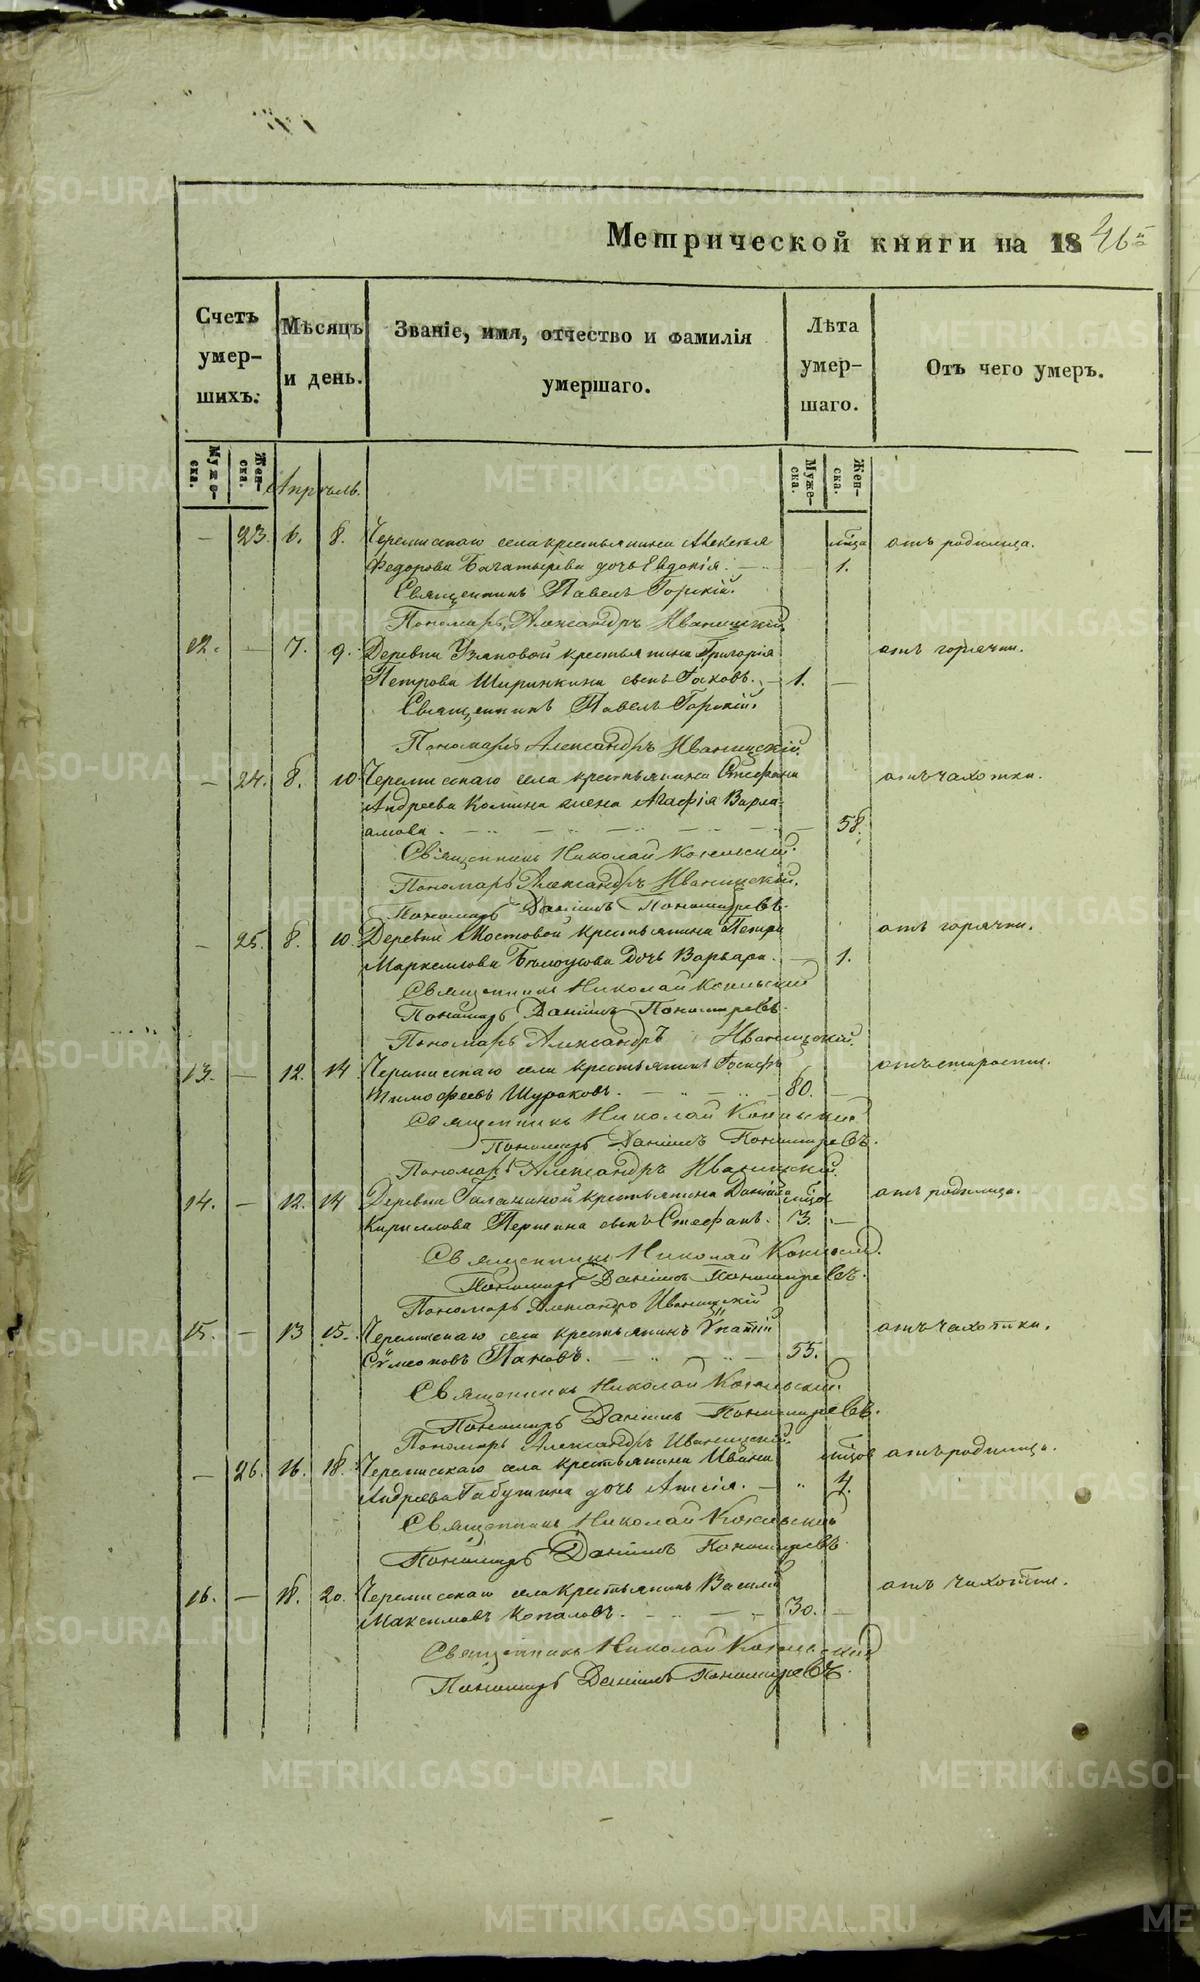 Метрической книги на 1846й
Счетъ умер-шихъ.
Мѣсяцъ и день.
Званіе, имя, отчество и фамилія умершаго.
Лѣта умер-шаго.
Отъ чего умеръ.
Муже-ска.
Жен-ска.
Муже-ска.
Жен-ска.
Апрѣль.
— 23. 6. 8. Черемисскаго села крестьянина Алексѣя отъ родимца.
Федорова Багатырева дочь Евдокія. — 1.
Священникъ Павелъ Горскій.
Пономарь Александръ Иваницкій.
12. — 7. 9. Деревни крестьянина Григорія отъ горячки.
Петрова Ширинкина сынъ Іаковъ. — 1. —
Священникъ Павелъ Горскій.
Пономарь Александръ Иваницкій.
— 24. 8. 10. Черемисскаго села крестьянина Стефана отъ чахотки.
Андреева Комина жена Агафія Варла-
амова. — 58.
Священникъ Николай
Пономарь Александръ Иваницкій.
Пономарь Даніилъ Пономаревъ.
— 25. 8. 10. Деревни Мостовой крестьянина Петра отъ горячки.
Маркеллова Бѣлоусова дочь Варвара. — 1.
Священникъ Николай
Пономарь Даніилъ Пономаревъ.
Пономарь Александръ Иваницкій.
13. — 12. 14. Черемисскаго села крестьянинъ Іосифъ отъ старости.
Тимофеевъ Шураковъ. — 80. —
Священникъ Николай
Пономарь Даніилъ Пономаревъ.
Пономарь Александръ Иваницкій.
14. — 12. 14 Деревни Галаниной крестьянина Даніила отъ родимца.
Кириллова Першина сынъ Стефанъ. 3. —
Священникъ Николай
Пономарь Даніилъ Пономаревъ.
Пономарь Александръ Иваницкій
15. — 13 15. Черемисскаго села крестьянинъ Ѵпатій отъ чахотки.
Сѵмеоновъ Пановъ. — 55.
Священникъ Николай
Пономарь Даніилъ Пономаревъ.
Пономарь Александръ Иваницкій.
— 26. 16. 18. Черемисскаго села крестьянина Ивана отъ родимца.
Андреева Габушина дочь Анисія. — 4.
Священникъ Николай
Пономарь Даніилъ Пономаревъ.
16. — 18. 20. Черемисскаго села крестьянинъ Василій отъ чахотки.
Максимовъ Копаловъ. — 30. —
Священникъ Николай
Пономарь Даніилъ Пономаревъ.